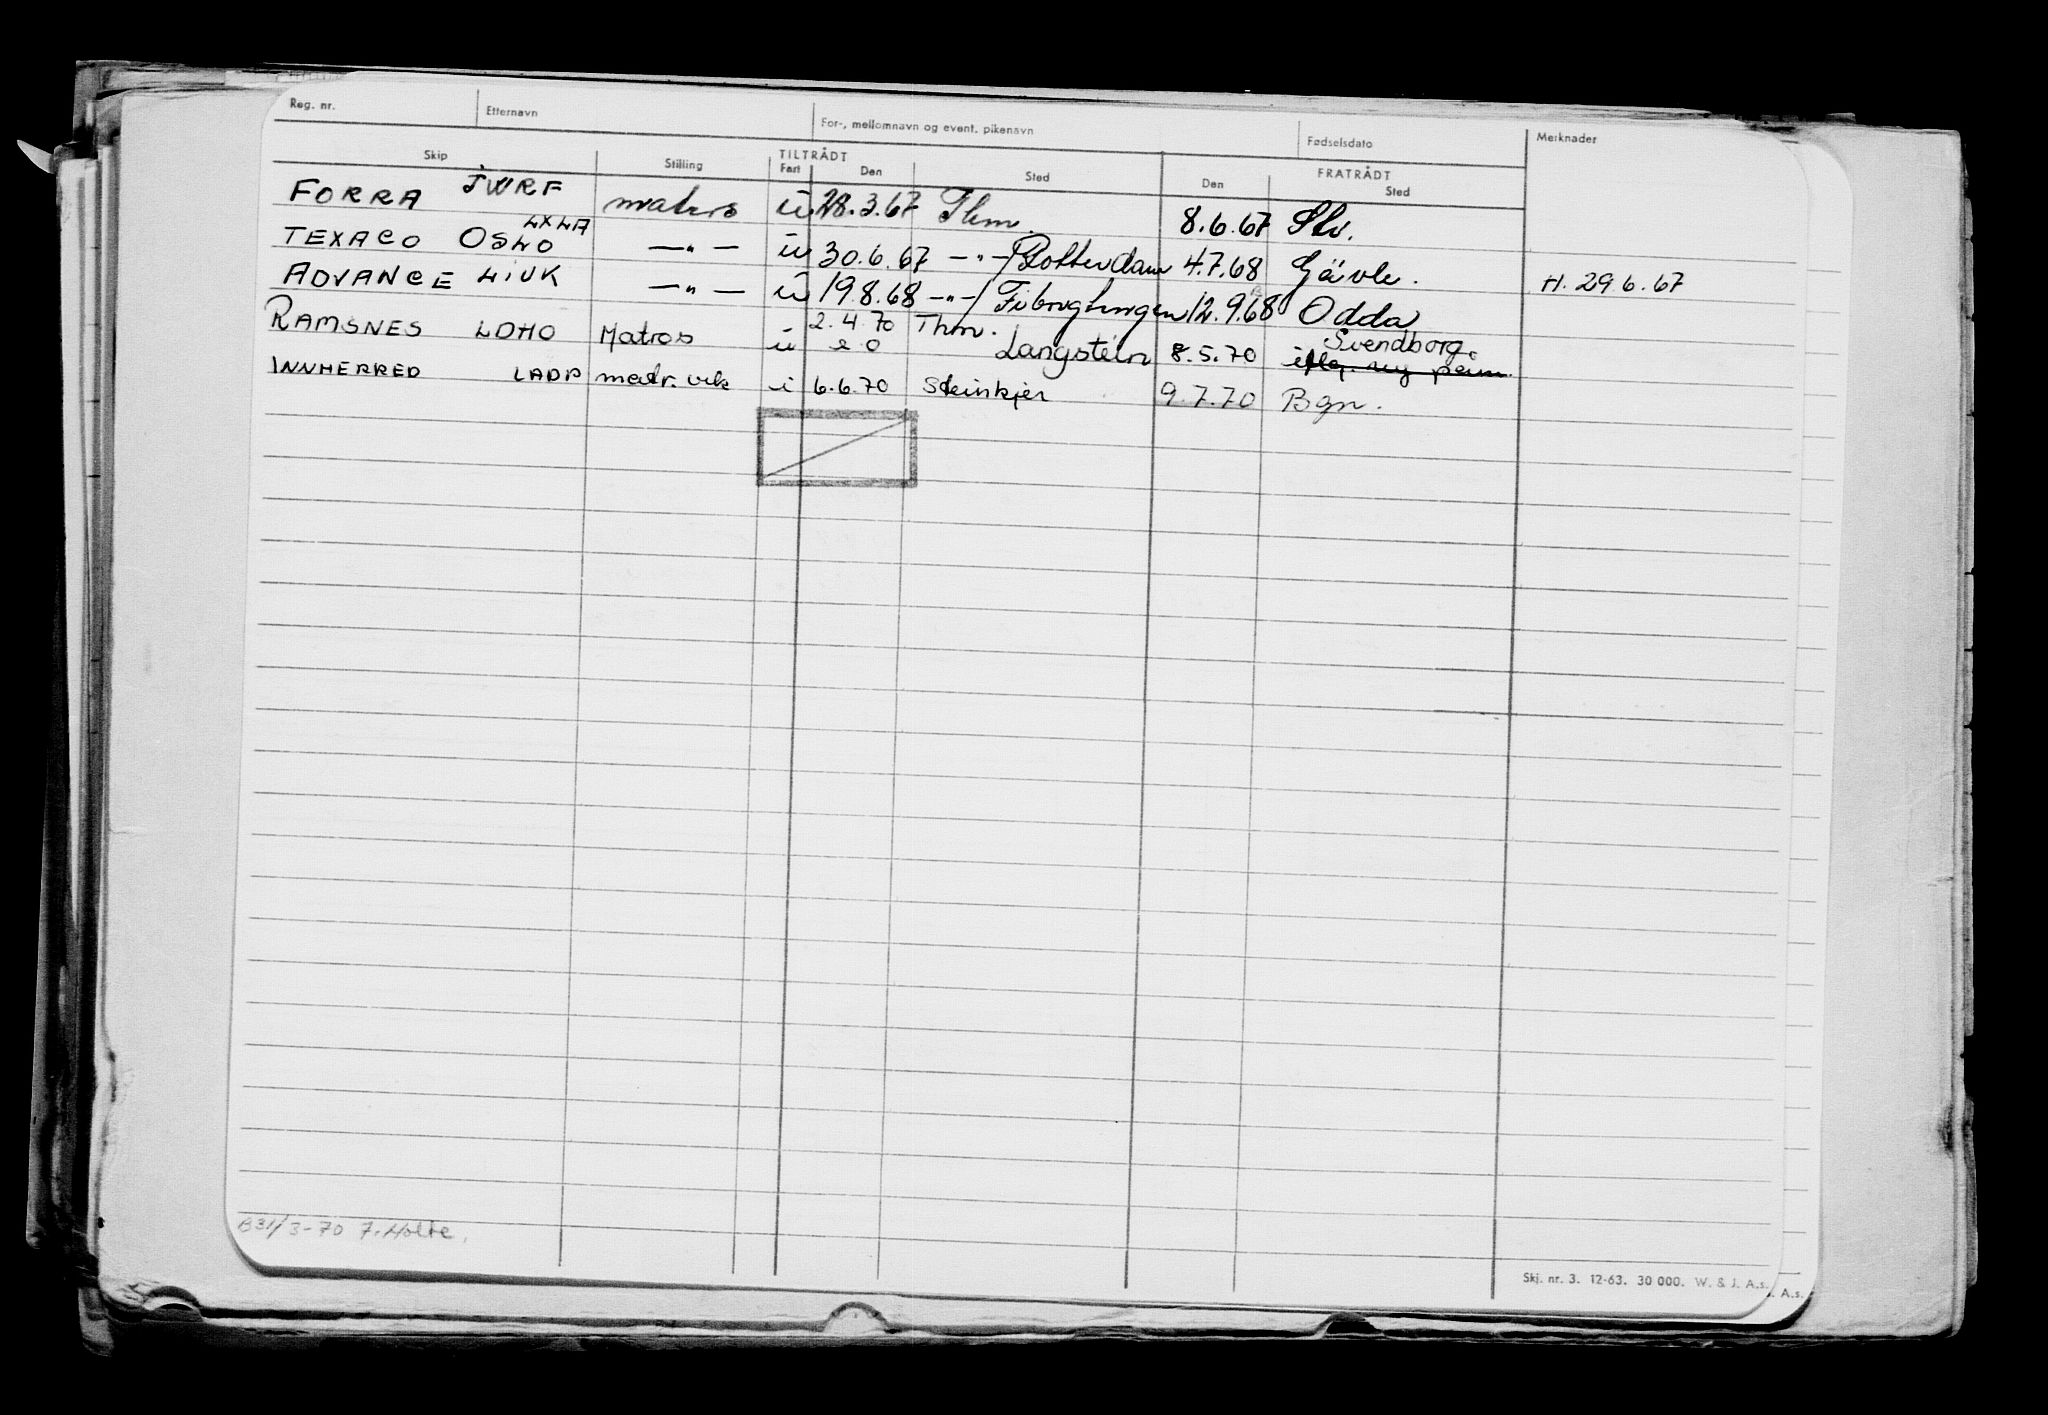 Reg. nr. Etternavn For-, mellomnavn og event. pikenavn Fødselsdato Merknader
Skip Stilling TILTRÅDT Fart Den Sted FRATRÅDT Den Sted
FORRA JWRF matros u 28.3.67 Thm. 8.6.67 Stv.
TEXACO OSLO LXLA —"— u 30.6.67 -"-/Rotterdam 4.7.68 Gävle. H. 29.6.67
ADVANCE LIVK —"— u 19.8.68 -"-/ 12.9.68 Odda
RAMSNES LDHO Matros u 2.4.70 Thm. Langstein 8.5.70 Svendborg.
INNHERRED LADP matr. vik i 6.6.70 Steinkjer 9.7.70 Bgn.
B31/3-70 F. Holte.
Skj. nr. 3. 12-63. 30 000. W. & J. A.s.
A.s.